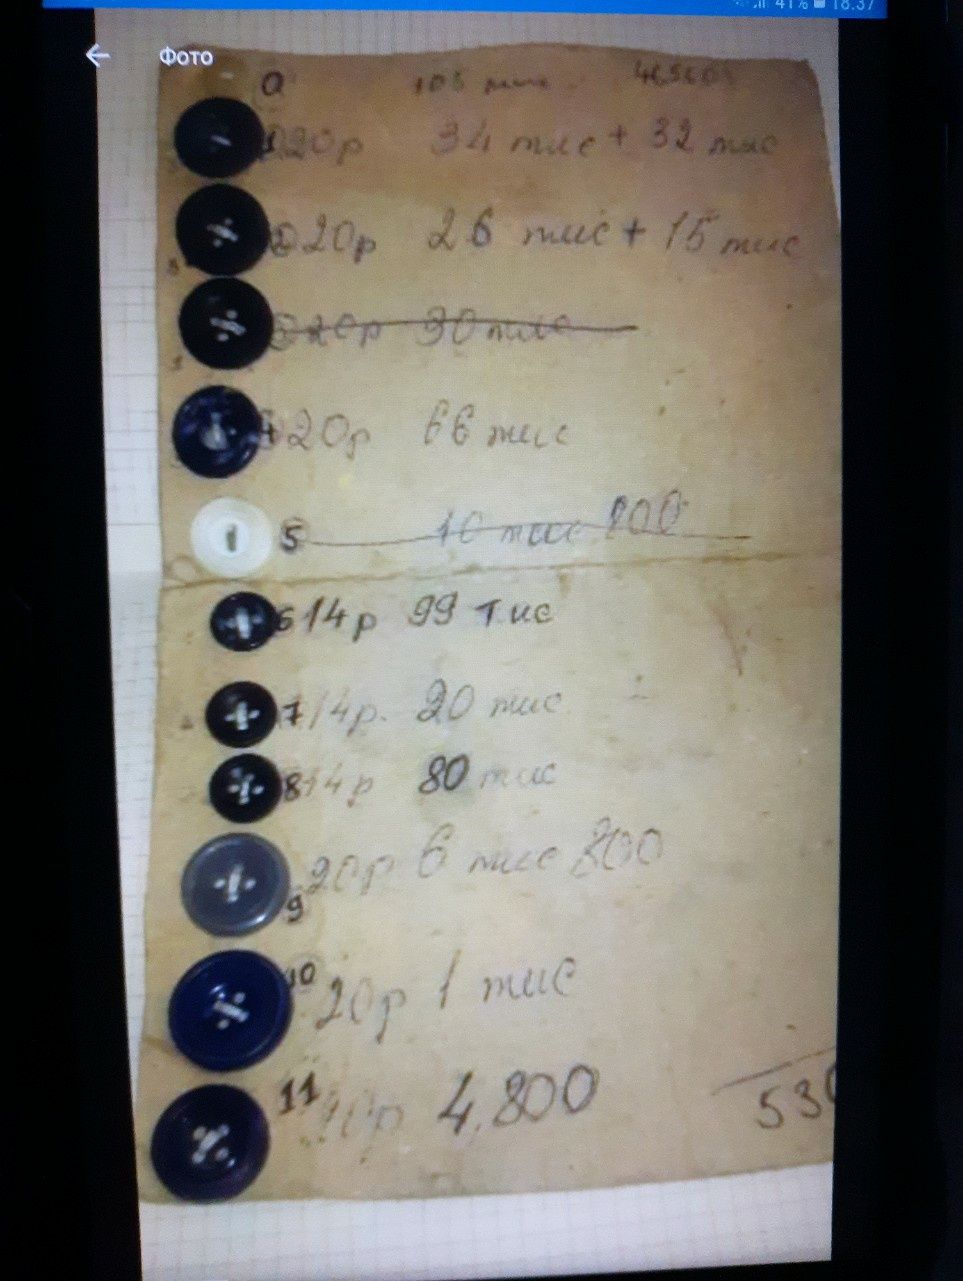 41% 18:37
← Фото
0 105 тис
1 20р 34 тис + 32 тис
2 20р 26 тис + 15 тис
3 20р 30 тис
4 20р 66 тис
5 10 тис 800
6 14р 99 тис
7 14р. 20 тис
8 14р 80 тис
20р 6 тис 800
9
10
20р 1 тис
11 4,800
530